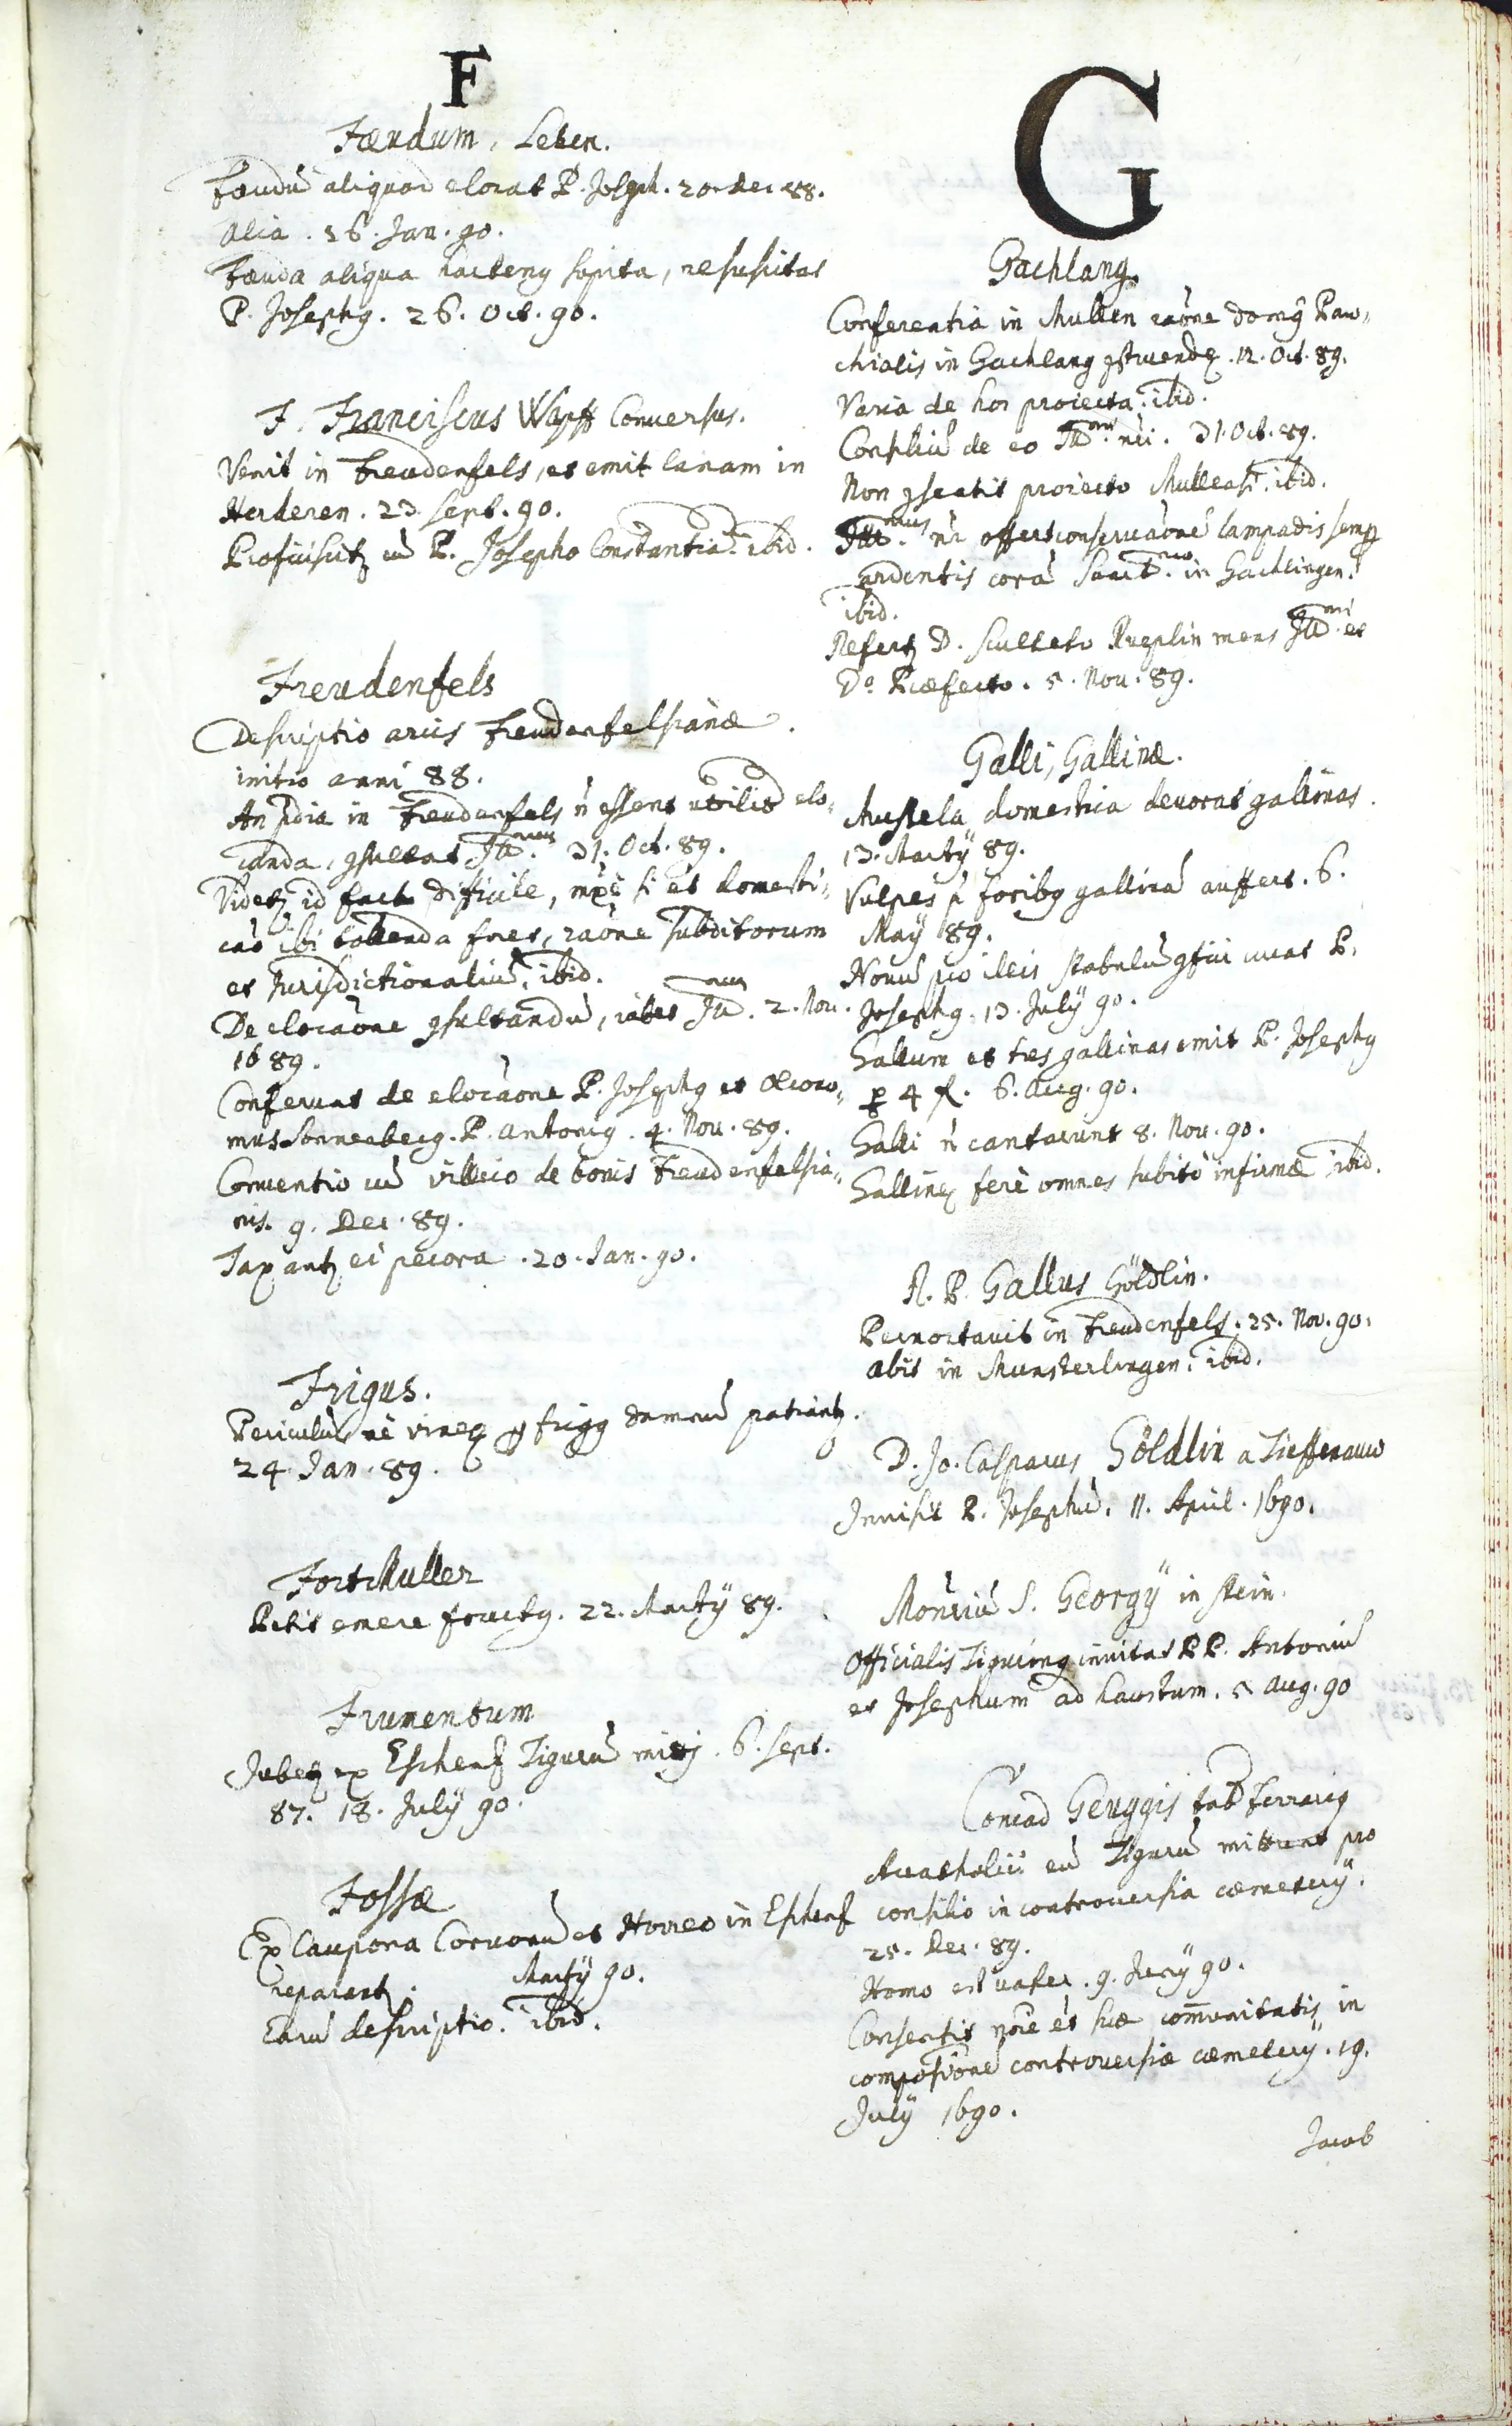 F
Fœudum, Lehen.
Fœudũ aliquod elocat P. Joseph. 20. Dec. 88.
Alia. 16. Jan. 90.
Fœuda aliqua hactenq sopita, resuscitat
P. Josephq. 26. Oct. 90.
F. Franciscus Wapff Conversus.
Venit in Freudenfels, et emit lanam in
Herderen. 23. Sept. 90.
Proficiscitr cũ P. Josepho Constantiã. ibid.
Freudenfels
Descriptio arcis Freudenfelsianæ.
initio anni 88.
An prædia in Freudenfels ñ essent utiliq elo„
canda, gsultat Illmus. 31. Oct. 89.
Videtr id factu difficile, mxe si et domesti„
cãõ ibi tollenda foret, raõne subditorum
et Jurisdictionaliũ. ibid.
De elocaõne gsultandũ, iubet Illmus. 2. Nou.
1689.
Conferunt de elocaõne P. Josephq et Œcono„
mus Sonnenberg. P. Antoniq. 4. Nou. 89.
Conventio cũ villico de bonis Freudenfelsia„
nis. 9. Dec. 89.
Taxantr ei pecora. 20. Jan. 90.
Frigus.
Periculũ ne vineę p frigq damnũ patiantr.
24. Jan. 89.
Fortmuller
Petit emere fructq. 22. Martÿ 89.
Frumentum
Jubetr ex Eschenz Tigurũ mitti. 6. Sept.
87. 18. Julÿ 90.
Fossæ
Ex Caupona Corvorũ et Horreo in Eschenz
reparantr. Martÿ 90.
Earũ descriptio. ibid.
G
Gachlang.
Conferentia in Mullen raõne domq Paro„
chialis in Gachlang gstruendę. 12. Oct. 89.
Varia de hoc proiecta. ibid.
Consiliũ de eo Illmi nri. 31. Oct. 89.
Non gsentit proiecto Mullensi. ibid.
Illmus nr offert conservaõnẽ lampadis semp
ardentis corã Sanctmo in Gachlingen.
ibid.
Refertr D. Sculteto Rueplin mens Illmi et
Do Præfecto. 5. Nou. 89.
Galli, Gallinæ.
Mustela domestica devorat gallinas.
13. Martÿ 89.
Vulpes p̃ foribq gallinã aufert. 6.
Maÿ 89.
Novũ pro illis stabulũ gfici curat P.
Josephq. 13. Julÿ 90.
Gallum et tres gallinas emit P. Josephq
p 4 fl. 6. Aug. 90.
Galli ñ cantarunt 8. Nou. 90.
Gallinę ferè omnes subitò infirmæ ibid.
R. P. Gallus Göldlin.
Pernoctavit in Freudenfels. 25. Nov. 90.
Abit in Munsterlingen. ibid.
D. Jo. Casparus Göldlin a Tieffenauw
Invisit P. Josephũ. 11. April. 1690.
Monriũ S. Georgÿ in Stein.
Officialis Tigurinq invitat PP. Antoniũ
et Josephum ad haustum. 5 Aug. 90
Conrad Geuggis fab Ferrariq
Acatholici eũ Tigurũ mittunt pro
consilio in controversia cœmeterÿ.
25. Dec. 89.
Homo est vafer. 9. Junÿ 90.
Consentit noĩe et suæ com̄unitatis in
compositionẽ controversiæ cœmeterÿ. 19.
Julÿ 1690.
Jacob